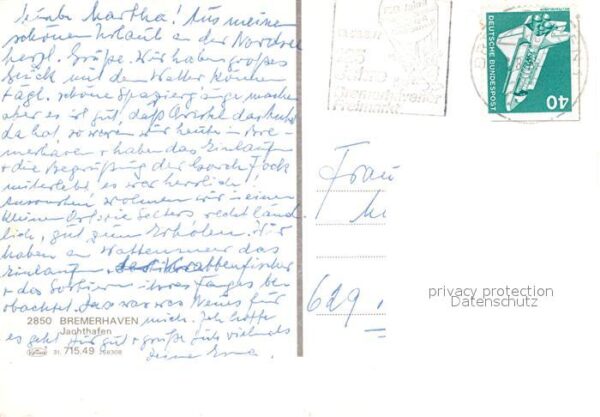 Liebe Martha! Aus meinem
schönen Urlaub an der Nordsee
herzl. Grüße. Wir haben großes
Glück mit dem Wetter können
tägl. schöne Spaziergänge machen
aber es ist gut, daß das Auto
da hat, so waren wir heute in Bre-
merhaven + haben das Einlaufen
+ die Begrüßung der Gorch Fock
miterlebt, es war herrlich!
Ansonsten wohnen wir in einem
kleinen Ort, recht länd-
lich, gut zum Erholen. Wir
haben am Wattenmeer das
Einlaufen der Krabbenfischer
+ das Sortieren ihres Fanges be-
obachtet. das war was Neues für
mich. Ich hoffe
es geht Dir gut + grüße Dich vielmals
deine Erna.
2850 BREMERHAVEN
Jachthafen
31. 715.49
Freimarkt
DEUTSCHE BUNDESPOST
40
Frau
M
629
privacy protection
Datenschutz